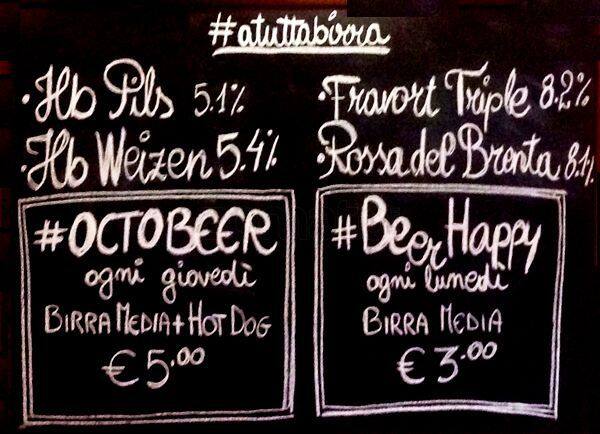 #atuttabirra
·Hb Pils 5.1%
·Hb Weizen 5.4%
·Fravort Triple 8.2%
·Rossa del Brenta 8.1%
#OCTOBEER
ogni giovedì
BIRRA MEDIA + HOT DOG
€ 5.00
#BeerHappy
ogni lunedì
BIRRA MEDIA
€ 3.00